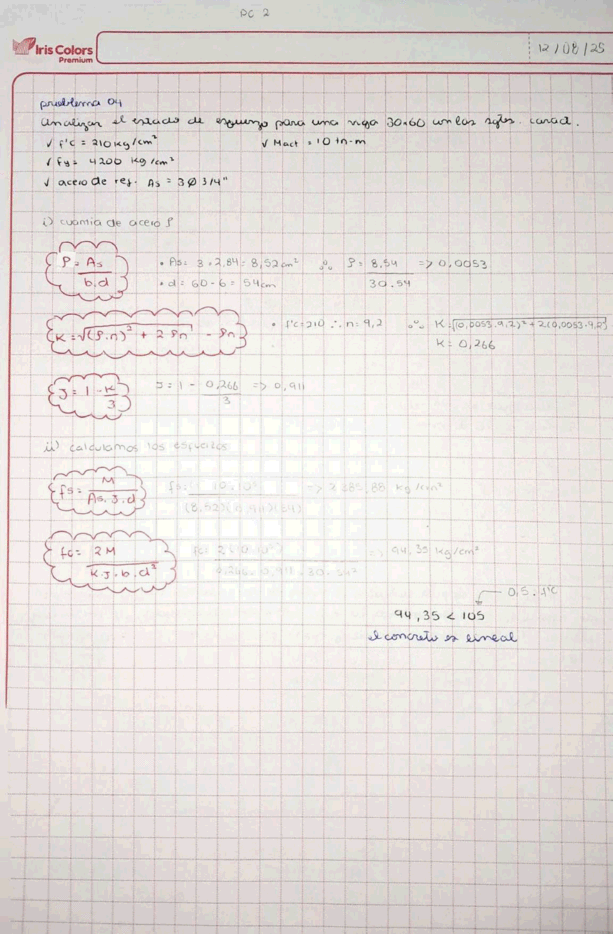 PC 2
Iris Colors
Premium
12/08/25
problema 04
analizar el estado de esfuerzo para una viga 30x60 con las sgtes. caract.
√ f'c = 210 kg/cm² √ Mact = 10 tn-m
√ fy = 4200 kg/cm²
√ acero de ref. As = 3 Ø 3/4"
i) cuantia de acero ρ
ρ = As / b.d
• As = 3 × 2,84 = 8,52 cm² ∴ ρ = 8,54 / 30.54 => 0,0053
• d = 60 - 6 = 54 cm
K = √(ρ.n)² + 2ρn - ρn
• f'c = 210 ∴ n = 9,2 ∴ K = √(0,0053.9,2)² + 2(0,0053.9,2)
K = 0,266
J = 1 - K/3
J = 1 - 0,266/3 => 0,911
ii) calculamos los esfuerzos
fs = M / As.J.d
(8,52)
kg/cm²
fc = 2M / K.J.b.d²
=> 94,35 kg/cm²
0,5.f'c
94,35 < 105
el concreto es lineal